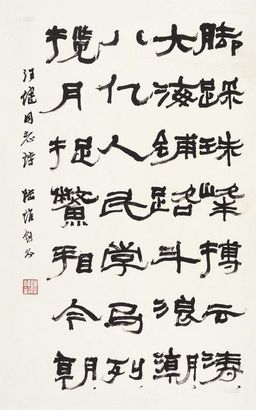 脚踩珠峰搏云涛
大海铺路斗浪潮
八亿人民学马列
揽月捉鳖看今朝
同志诗 陆维钊书